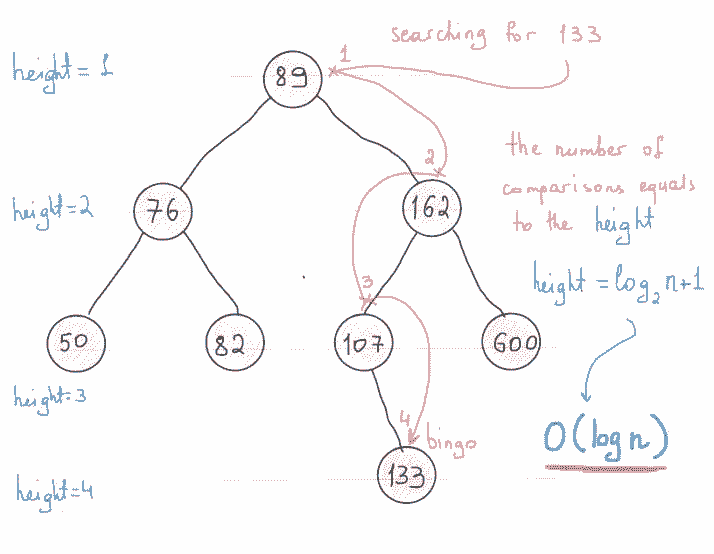 searching for 133
height = 1
1
89
2
the number of
comparisons equals
to the height
height=2
76
162
height = log₂ n+1
3
50
82
107
600
height=3
4
bingo
O(log n)
133
height=4